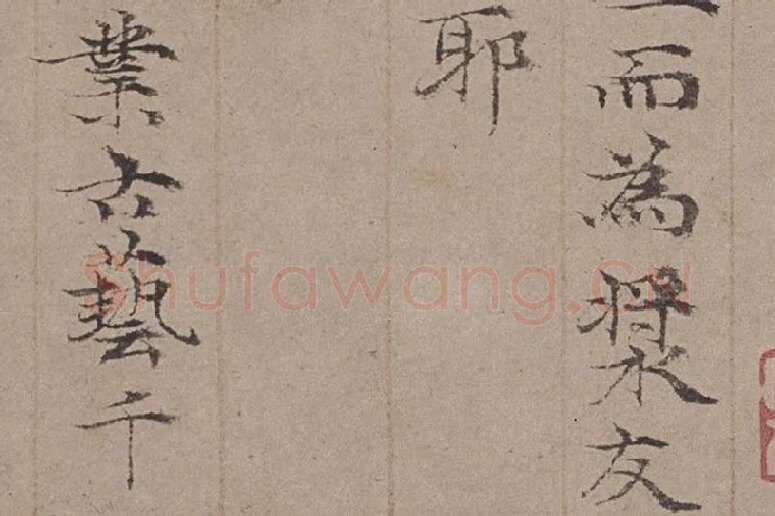 而為漿友
耶
業古藝千
Shufawang.cn